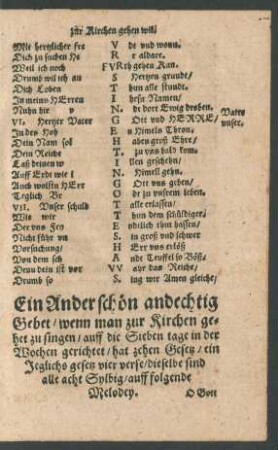 zur Kirchen gehen wil.
Mit hertzlicher fre V de vnd wonn.
Dich zu suchen He R r aldare.
Weil ich noch FVRth gehen Kan.
Drumb wil ich an S Hertzen grundt/
Dich Loben T hun alle stundt.
In meins HErren I hesu Namen/
Nuhn hir v N. de dort Ewig droben.
VI. Hertzer Vater G Ott vnd HERRE/ Vater vnser.
In des Hoh E n Himels Thron.
Dein Nam sol H aben groß Ehre/
Dein Reiche T. zu vns bald kom.
Laß deinen w I llen geschehn/
Auff Erdt wie i N. Himell gehn.
Auch wolstu HErr G Ott vns geben/
Teglich Br O de zu vnserm leben.
VII. Vnser schuld T atle erlassen/
Wie wir T hun dem schüldiger/
Der vns Fey E ndtlich thut hassen/
Nicht führe vn S. in groß vnd schwer
Versuchung/ H Err vns erlöß
Von dem sch A nde Teuffel so Böß/
Denn dein ist vor VV ahr das Reiche/
Drumb so S. ing wir Amen gleiche/
Ein Ander schön andechtig
Gebet/wenn man zur Kirchen ge-
het zu singen/auff die Sieben tage in der
Wochen gerichtet/hat zehen Gesetz/ein
Jeglichs gesetz vier verse/dieselbe sind
alle acht Sylbig/auff folgende
Melodey. O Gott